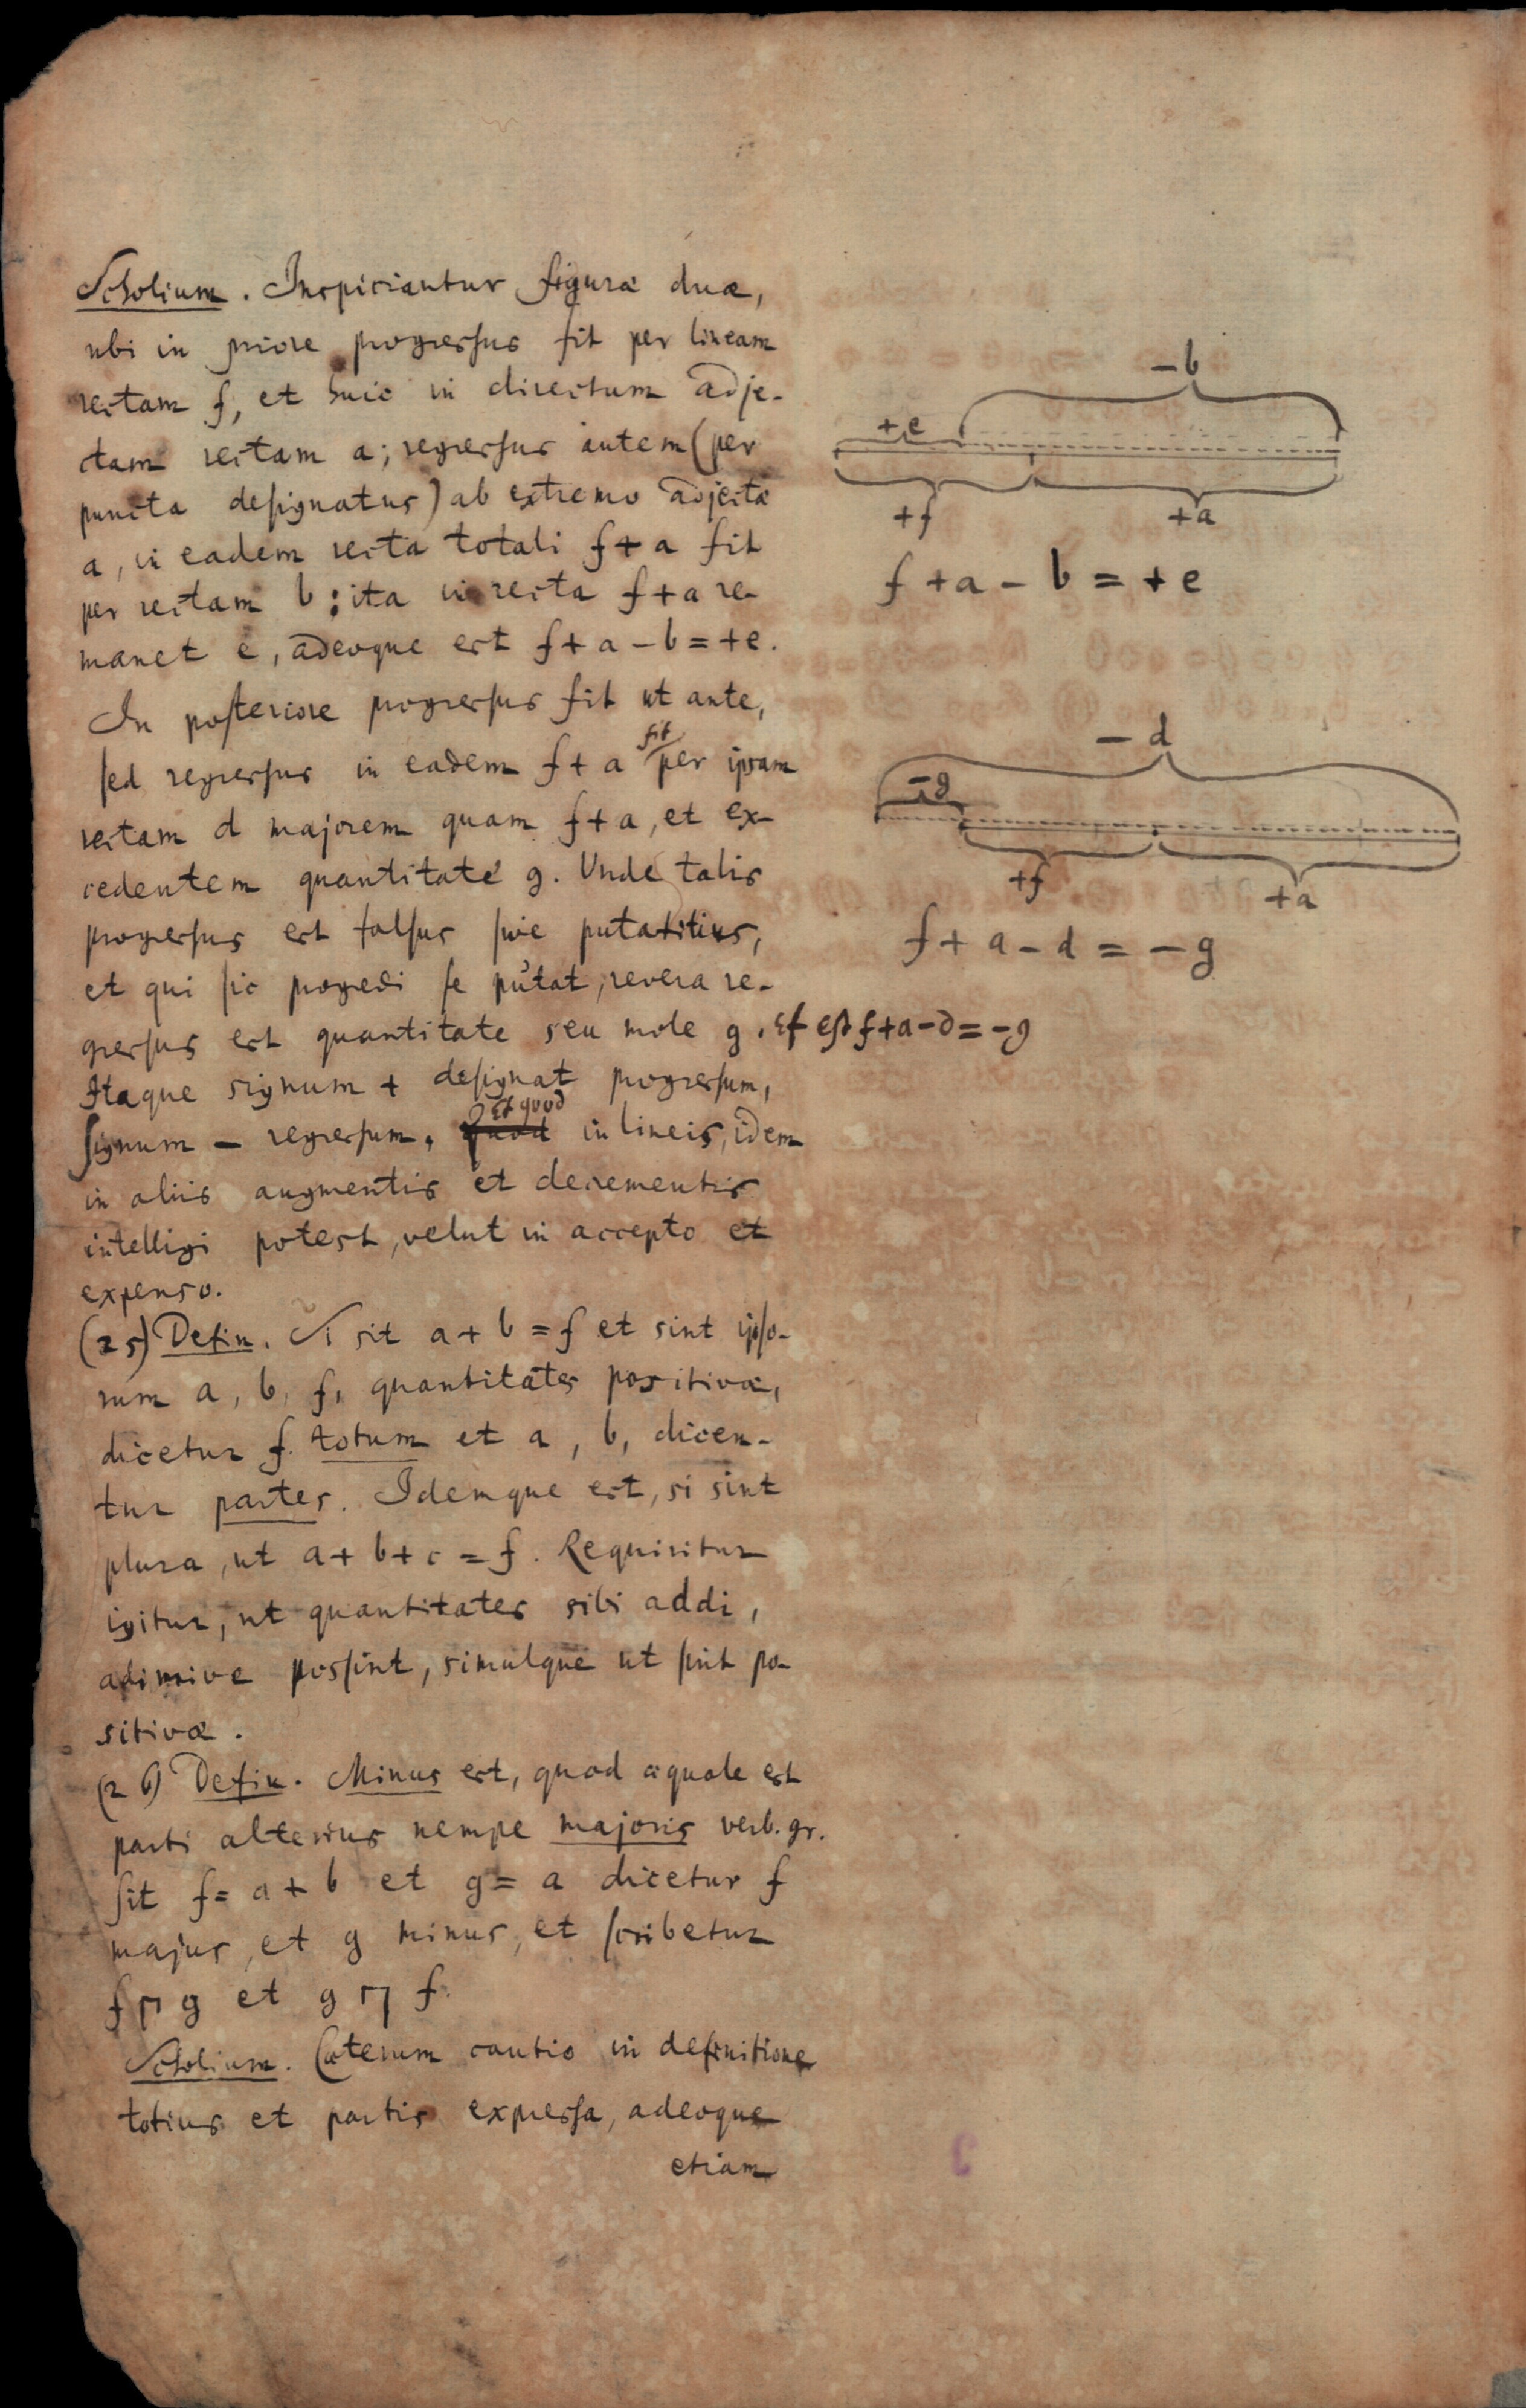 Scholium. Inspiciantur figuræ duæ,
ubi in priore progressus fit per lineam
rectam f, et huic in directum adje-
ctam rectam a; regressus autem (per
puncta designatus) ab extremo adjectæ
a, in eadem recta totali f+a fit
per rectam b: ita in recta f+a re-
manet e, adeoque est f+a-b=+e.
In posteriore progressus fit ut ante,
sed regressus in eadem f+a fit per ipsam
rectam d majorem quam f+a, et ex-
cedentem quantitate g. Unde talis
progressus est falsus sive putatitius,
et qui sic progredi se putat, revera re-
gressus est quantitate seu mole g. Et est f+a-d=-g
Itaque signum + designat progressum,
signum - regressum. Et quod in lineis, idem
in aliis augmentis et decrementis
intelligi potest, velut in accepto et
expenso.
(25) Defin. Si sit a+b=f et sint ipso-
rum a, b, f, quantitates positivæ,
dicetur f. totum et a, b, dicen-
tur partes. Idemque est, si sint
plura, ut a+b+c=f. Requiritur
igitur, ut quantitates sibi addi,
adimive possint, simulque ut sint po-
sitivæ.
(26) Defin. Minus est, quod æquale est
parti alterius nempe majoris verb. gr.
sit f=a+b et g=a dicetur f
majus, et g minus, et scribetur
f ┌┐ g et g ┌┐ f.
Scholium. Cæterum cautio in definitione
totius et partis expressa, adeoque
etiam
-b
+e
+f +a
f+a-b=+e
-d
-g
+f +a
f+a-d=-g